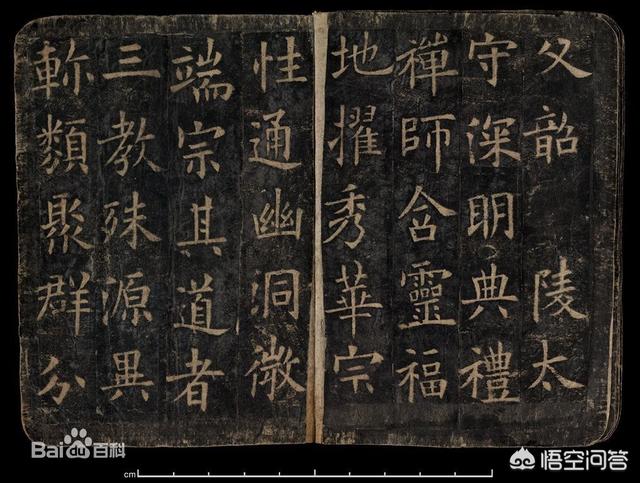 父韶 陵太
守深明典禮
禪師含靈福
地擢秀華宗
性通幽洞微
端宗其道者
三教殊源異
軫類聚群分
Bai百科
cm
悟空问答